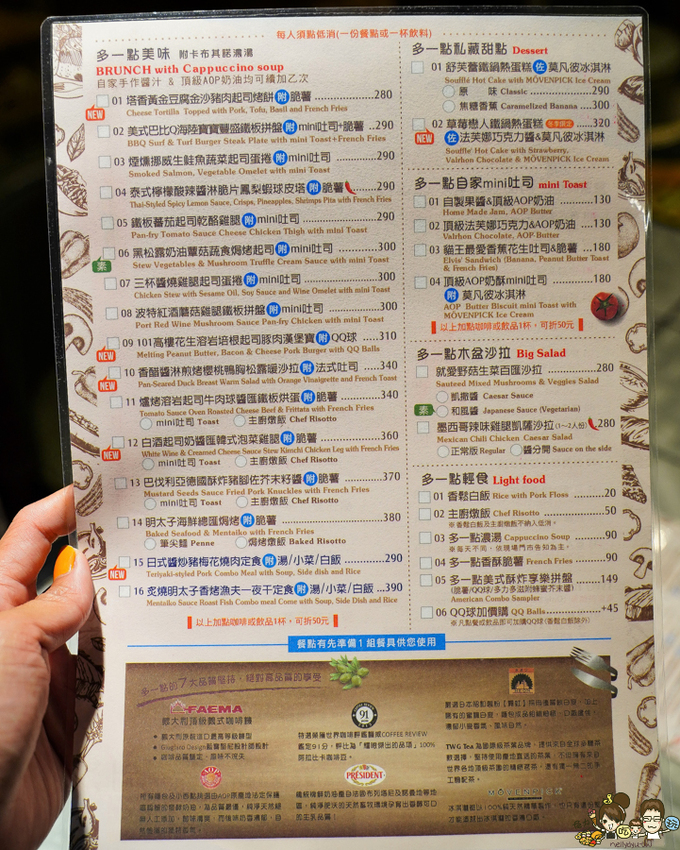 每人須點低消(一份餐點或一杯飲料)
多一點美味 附卡布其諾濃湯
BRUNCH with Cappuccino soup
自家手作醬汁 & 頂級AOP奶油均可續加乙次
NEW
01 塔香黃金豆腐金沙豬肉起司烤餅 附 脆薯 280
Cheese Tortilla Topped with Pork, Tofu, Basil and French Fries
02 美式巴比Q海陸寶寶豐盛鐵板拼盤 附 mini吐司+脆薯 290
BBQ Surf & Turf Burger Steak Plate with mini Toast+French Fries
03 煙燻挪威生鮭魚蔬菜起司蛋捲 附 mini吐司 290
Smoked Salmon, Vegetable Omelet with mini Toast
04 泰式檸檬酸辣醬淋脆片鳳梨蝦球皮塔 附 脆薯 290
Thai-Styled Spicy Lemon Sauce, Crisps, Pineapples, Shrimps Pita with French Fries
05 鐵板蕃茄起司乾酪雞腿 附 mini吐司 290
Pan-fry Tomato Sauce Cheese Chicken Thigh with mini Toast
素
06 黑松露奶油蕈菇蔬食焗烤起司 附 mini吐司 300
Stew Vegetables & Mushroom Truffle Cream Sauce with mini Toast
07 三杯醬燒雞腿起司蛋捲 附 mini吐司 300
Chicken Stew with Sesame Oil, Soy Sauce and Wine Omelet with mini Toast
08 波特紅酒蘑菇雞腿鐵板拼盤 附 mini吐司 300
Port Red Wine Mushroom Sauce Pan-fry Chicken with mini Toast
NEW
09 101高樓花生溶岩培根起司豚肉漢堡寶 附 QQ球 310
Melting Peanut Butter, Bacon & Cheese Pork Burger with QQ Balls
NEW
10 香醋醬淋煎烤櫻桃鴨胸松露暖沙拉 附 法式吐司 340
Pan-Seared Duck Breast Warm Salad with Orange Vinaigrette and French Toast
11 爐烤溶岩起司牛肉球醬匯鐵板烘蛋 附 脆薯 340
Tomato Sauce Oven Roasted Cheese Beef & Frittata with French Fries
mini吐司 Toast 主廚燉飯 Chef Risotto
NEW
12 白酒起司奶醬匯韓式泡菜雞腿 附 脆薯 360
White Wine & Creamed Cheese Sauce Stew Kimchi Chicken Leg with French Fries
mini吐司 Toast 主廚燉飯 Chef Risotto
13 巴伐利亞德國酥炸豬腳佐芥末籽醬 附 脆薯 370
Mustard Seeds Sauce Fried Pork Knuckles with French Fries
mini吐司 Toast 主廚燉飯 Chef Risotto
14 明太子海鮮總匯焗烤 附 脆薯 380
Baked Seafood & Mentaiko with French Fries
筆尖麵 Penne 焗烤燉飯 Baked Risotto
NEW
15 日式醬炒豬梅花燒肉定食 附 湯/小菜/白飯 290
Teriyaki-styled Pork Combo Meal with Soup, Side dish and Rice
16 炙燒明太子香烤漁夫一夜干定食 附 湯/小菜/白飯 390
Mentaiko Sauce Roast Fish Combo meal Come with Soup, Side Dish and Rice
以上加點咖啡或飲品1杯，可折50元
多一點私藏甜點 Dessert
01 舒芙蕾鐵鍋熱蛋糕 佐 莫凡彼冰淇淋
Soufflé Hot Cake with MÖVENPICK Ice Cream
原味 Classic 290
焦糖香蕉 Caramelized Banana 300
NEW
02 草莓戀人鐵鍋熱蛋糕 320
佐 法芙娜巧克力醬&莫凡彼冰淇淋
Souffle' Hot Cake with Strawberry,
Valrhon Chocolate & MÖVENPICK Ice Cream
多一點自家mini吐司 mini Toast
01 自製果醬&頂級AOP奶油 130
Home Made Jam, AOP Butter
02 頂級法芙娜巧克力&AOP奶油 130
Valrhon Chocolate, AOP Butter
03 貓王最愛香蕉花生吐司&脆薯 180
Elvis' Sandwich (Banana, Peanut Butter Toast
& French Fries)
04 頂級AOP奶酥mini吐司 180
附 莫凡彼冰淇淋
AOP Butter Biscuit mini Toast with
MÖVENPICK Ice Cream
以上加點咖啡或飲品1杯，可折50元
多一點木盆沙拉 Big Salad
就愛野菇生菜百匯沙拉 280
Sauteed Mixed Mushrooms & Veggies Salad
凱撒醬 Caesar Sauce
素
和風醬 Japanese Sauce (Vegetarian)
墨西哥辣味雞腿凱薩沙拉(1~2人份) 280
Mexican Chili Chicken Caesar Salad
正常版 Regular 醬分開 Sauce on the side
多一點輕食 Light food
01 香鬆白飯 Rice with Pork Floss 20
02 主廚燉飯 Chef Risotto 50
※香鬆白飯及主廚燉飯不納入低消。
03 多一點濃湯 Cappuccino Soup 90
※每天不同，依現場門市告知為主。
04 多一點香酥脆薯 French Fries 90
05 多一點美式酥炸享樂拼盤 149
(脆薯/QQ球/多力多滋附蜂蜜芥末醬)
American Combo Sampler
06 QQ球加價購 QQ Balls +45
※凡點餐或飲品即可加購QQ球(香鬆白飯除外)
餐點有先準備1組餐具供您使用
多一點的7大品質堅持，絕對高品質的享受
FAEMA
義大利頂級義式咖啡機
91
特選榮獲世界咖啡評鑑權威COFFEE REVIEW
PRÉSIDENT
MÖVENPICK